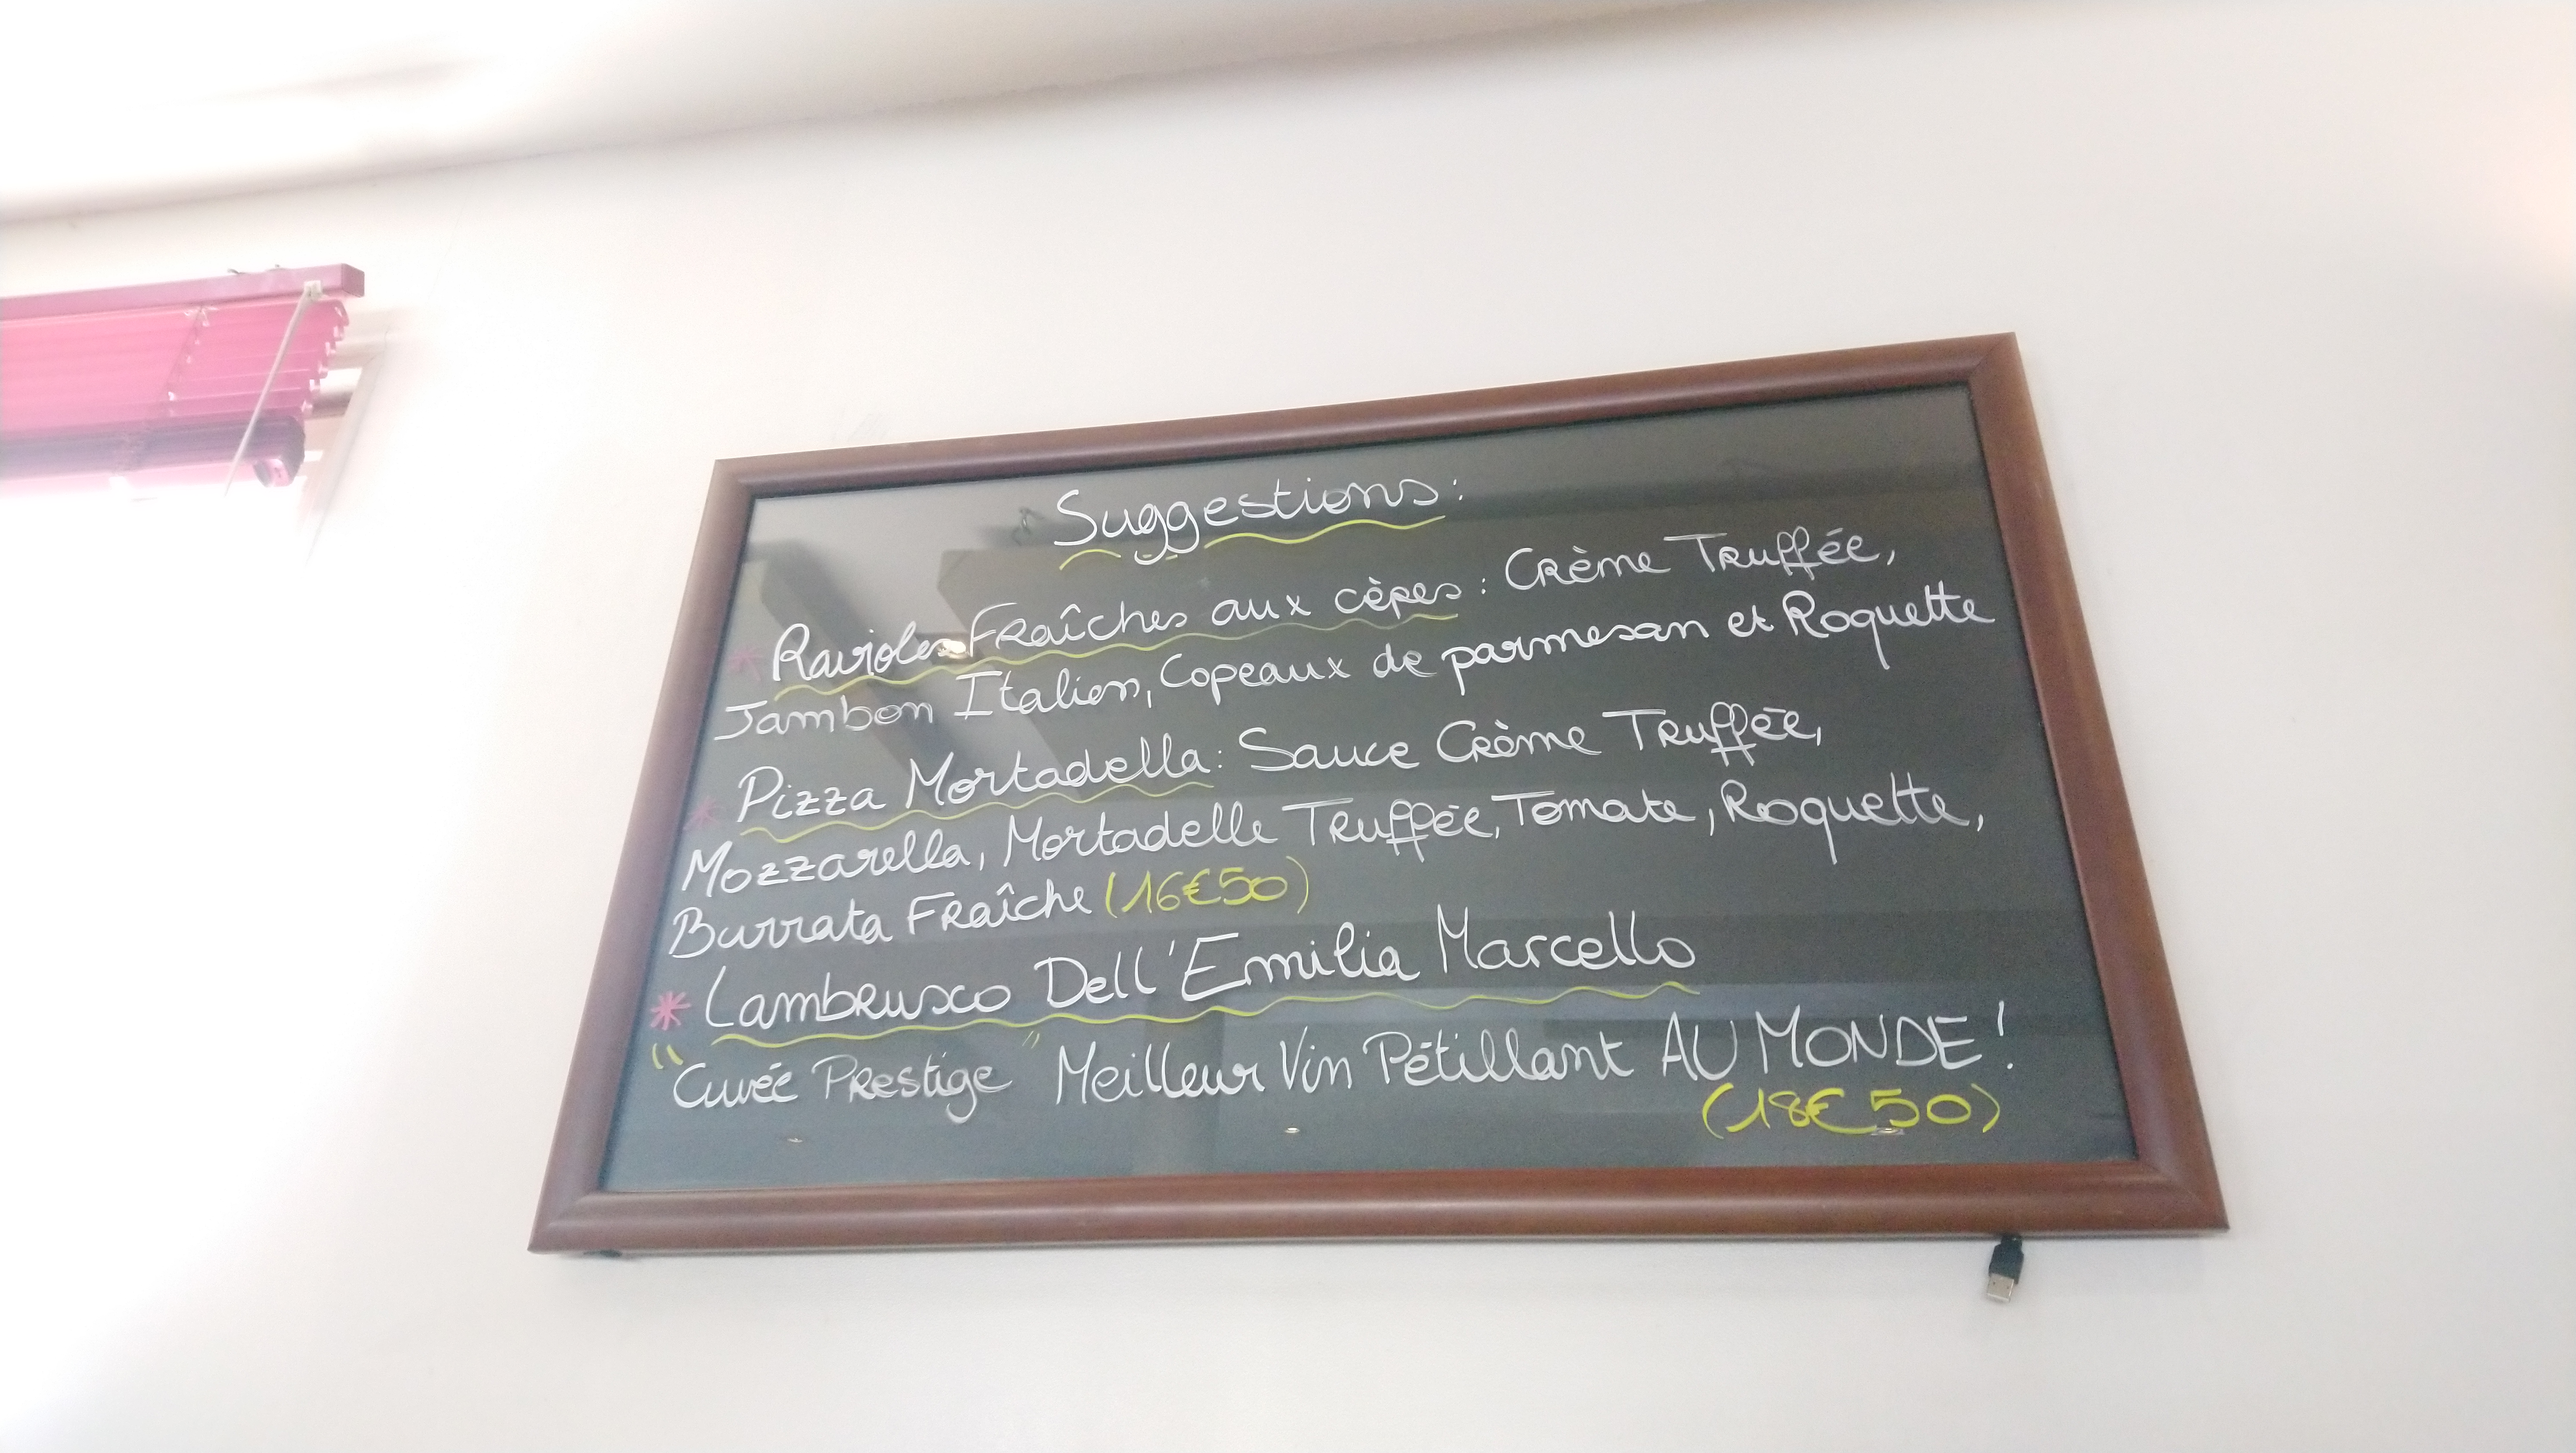 Suggestions:
* Ravioles Fraîches aux cèpes : Crème Truffée,
Jambon Italien, Copeaux de parmesan et Roquette
* Pizza Mortadella: Sauce Crème Truffée,
Mozzarella, Mortadelle Truffée, Tomate, Roquette,
Burrata Fraîche (16€50)
* Lambrusco Dell'Emilia Marcello
"Cuvée Prestige" Meilleur Vin Pétillant AU MONDE !
(18€50)